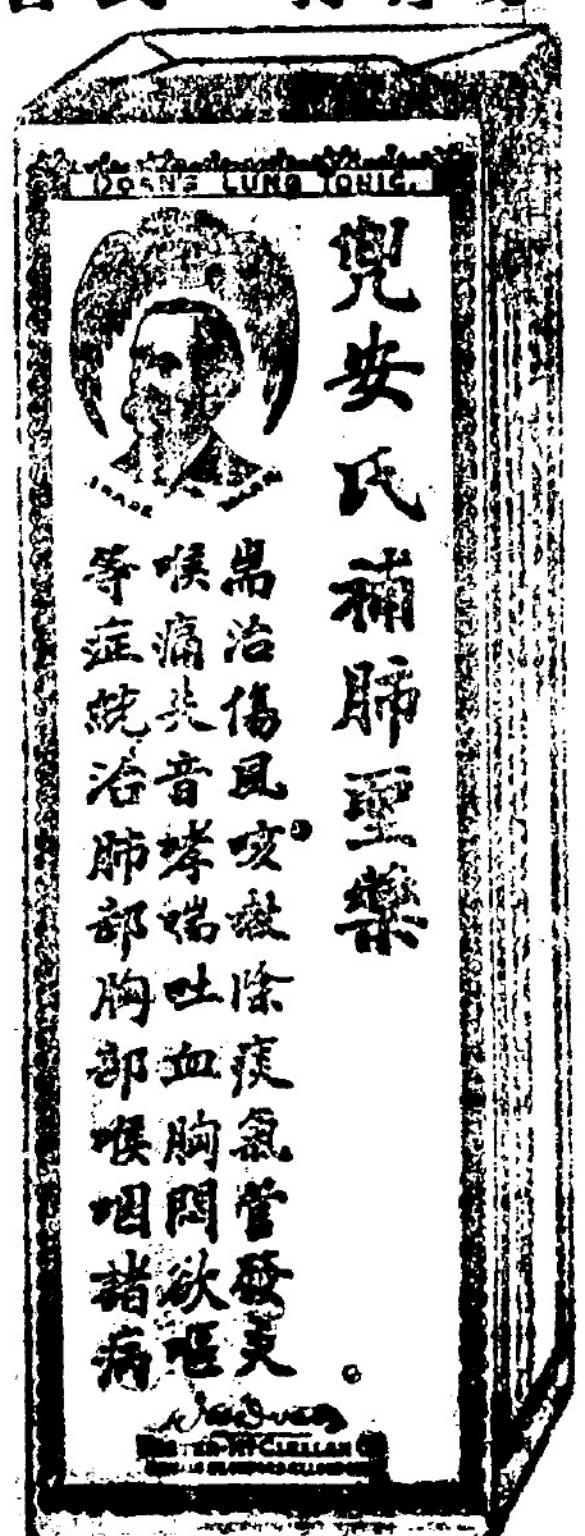 DOANS LUNG TONIC.
兜安氏補肺聖藥
TRADE MARK
耑治傷風咳嗽除痰氣管發炎
喉痛失音哮喘吐血胸悶欲嘔
等症統治肺部胸部喉咽諸病
FOSTER-McCLELLAN Co